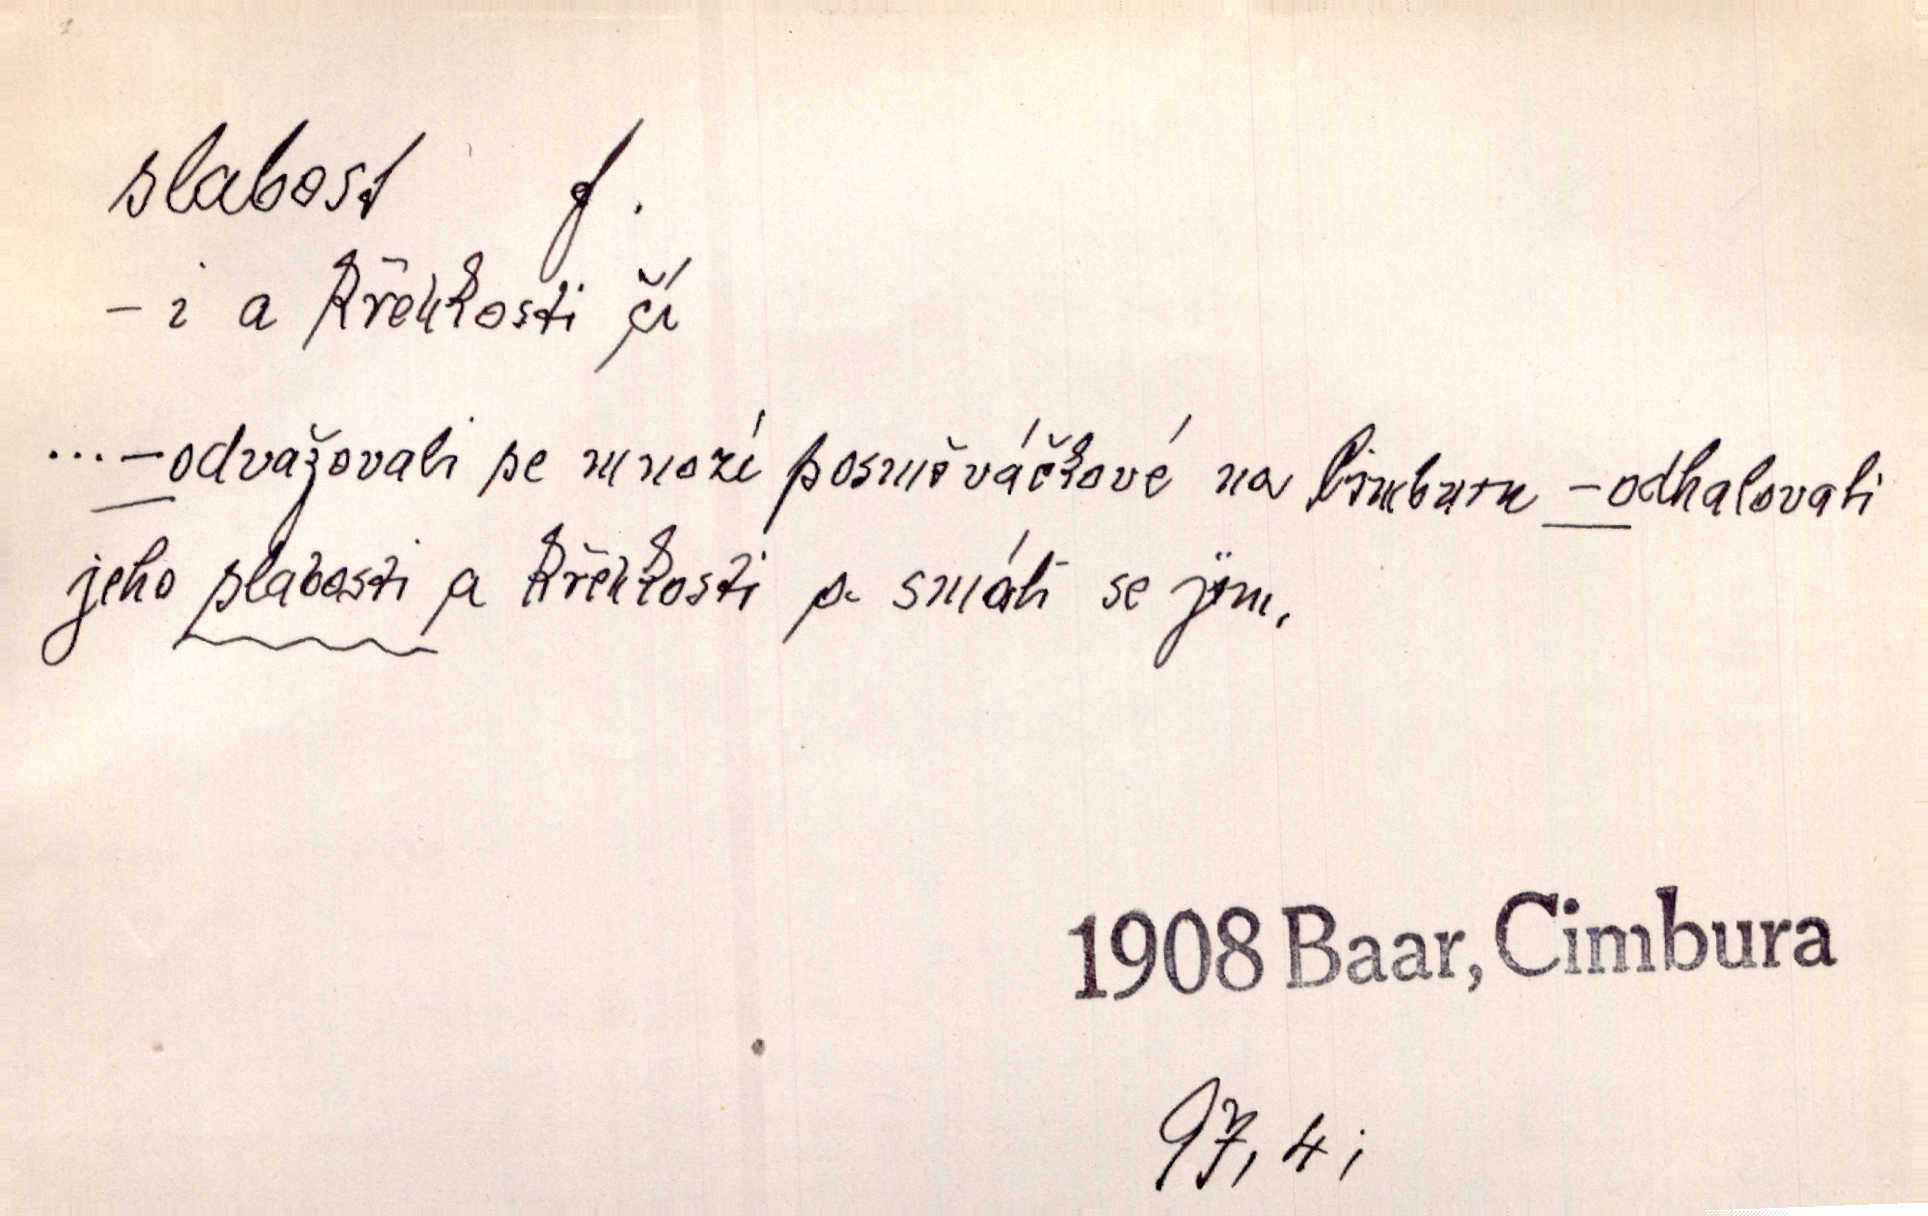 slabost f.
-i a křehkosti čí
... -odvažovali se mnozí posměváčkové na Cimburu -odhalovali
jeho slabosti a křehkosti a smáli se jim.
1908 Baar, Cimbura
97, 4;